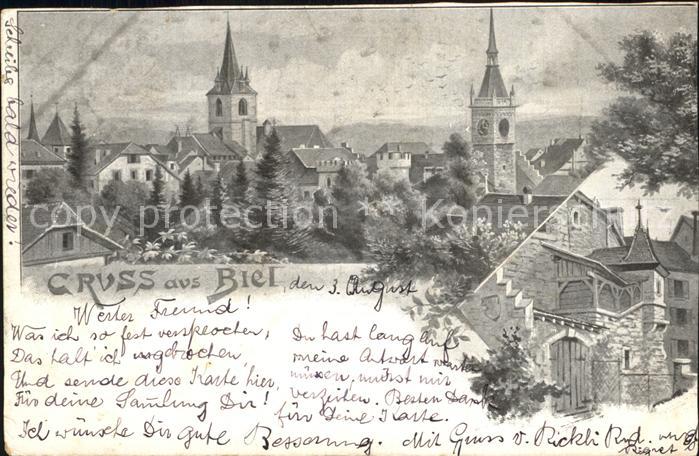 Schreibe bald wieder!
copyright protected oldthing.com
GRUSS aus BIEL, den 3. August
Werter Freund!
Was ich so fest versprochen,
Das halt ich ungebrochen,
Und sende diese Karte hier,
Für deine Samlung Dir!
Du hast lang auf
meine Antwort warten
müssen, müsst mir
verzeihen. Besten Dank
für Deine Karte.
Ich wünsche Dir gute Besserung. Mit Gruss v. Rickli Rud.